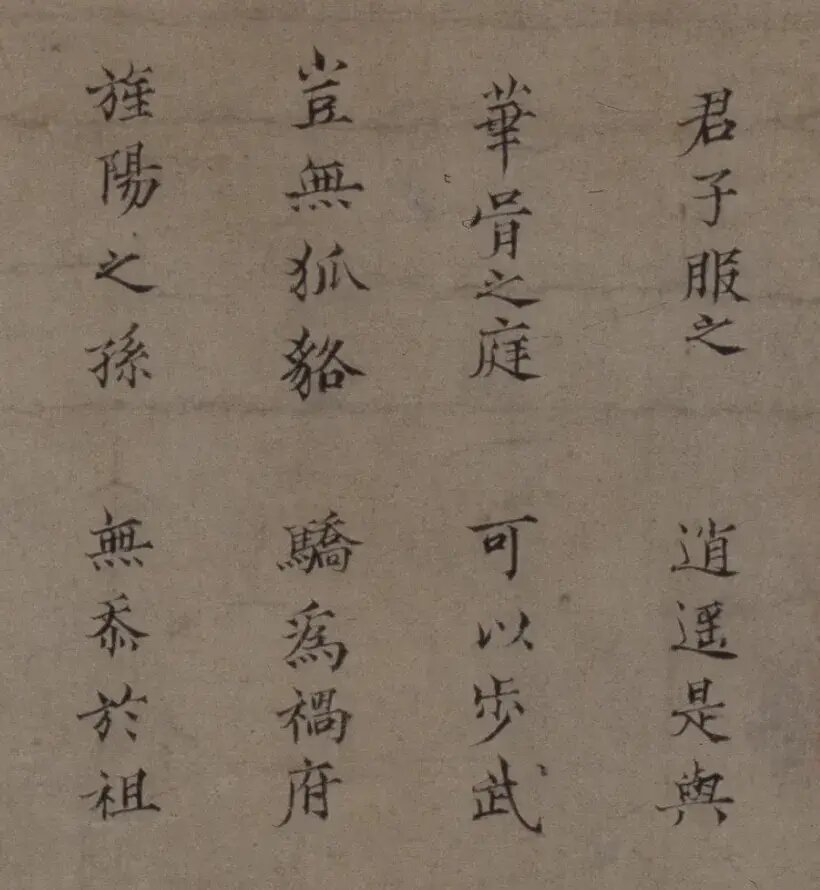 君子服之 逍遥是與
華胥之庭 可以步武
豈無狐貉 驕為禍府
旌陽之孫 無忝於祖